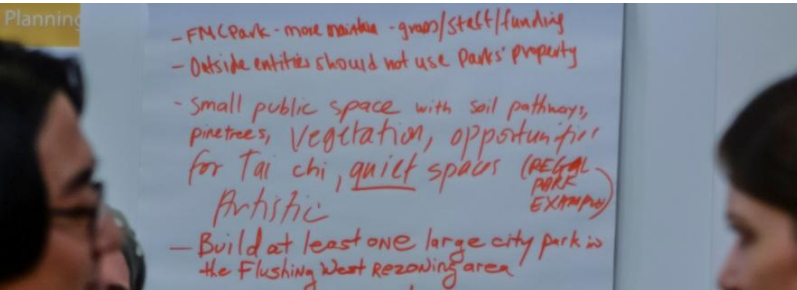 Planning
- FMCPark - more maintain - grass/staff/funding
- Outside entities should not use Parks' property
- Small public space with soil pathways,
pinetrees, vegetation, opportunities
for Tai chi, quiet spaces (REGAL
PARK
EXAMPLE)
Artistic
- Build at least one large city park in
the Flushing West Rezoning area